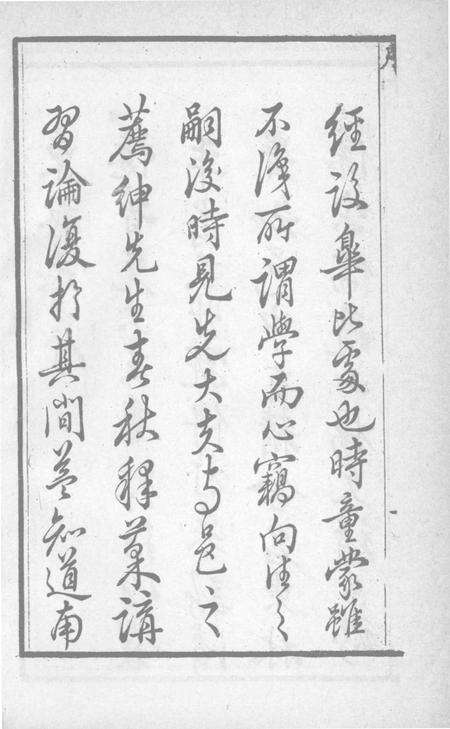 經設皐比處也時童蒙雖
不識所謂學而心竊向往之
嗣後時見先大夫与邑之
薦紳先生春秋釋菜講
習論復於其間益知道南